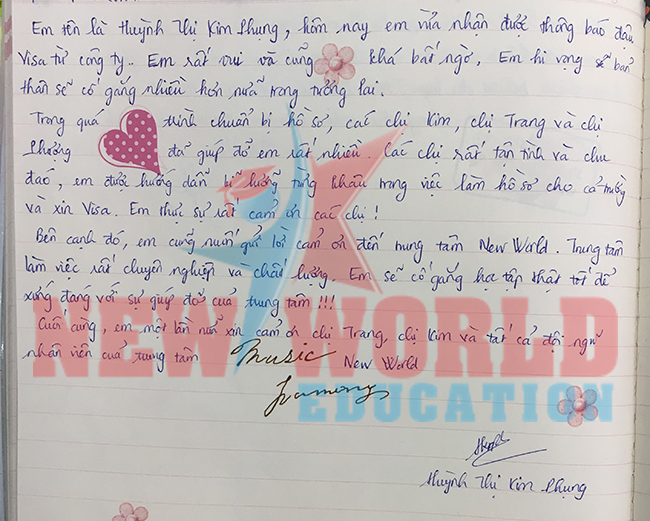 Em tên là Huỳnh Thị Kim Phụng, hôm nay em vừa nhận được thông báo đậu
Visa từ công ty.. Em rất vui và cũng khá bất ngờ, Em hi vọng sẽ bản
thân sẽ cố gắng nhiều hơn nữa trong tương lai.
Trong quá trình chuẩn bị hồ sơ, các chị Kim, chị Trang và chị
Phượng đã giúp đỡ em rất nhiều. Các chị rất tận tình và chu
đáo, em được hướng dẫn kĩ lưỡng từng khâu trong việc làm hồ sơ cho cả trường
và xin Visa. Em thực sự rất cảm ơn các chị!
Bên cạnh đó, em cũng muốn gửi lời cảm ơn đến trung tâm New World. Trung tâm
làm việc rất chuyên nghiệp và chất lượng. Em sẽ cố gắng học tập thật tốt để
xứng đáng với sự giúp đỡ của trung tâm!!!
Cuối cùng, em một lần nữa xin cảm ơn chị Trang, chị Kim và tất cả đội ngũ
nhân viên của trung tâm Music New World
Harmony
NEW WORLD
EDUCATION
Huỳnh Thị Kim Phụng